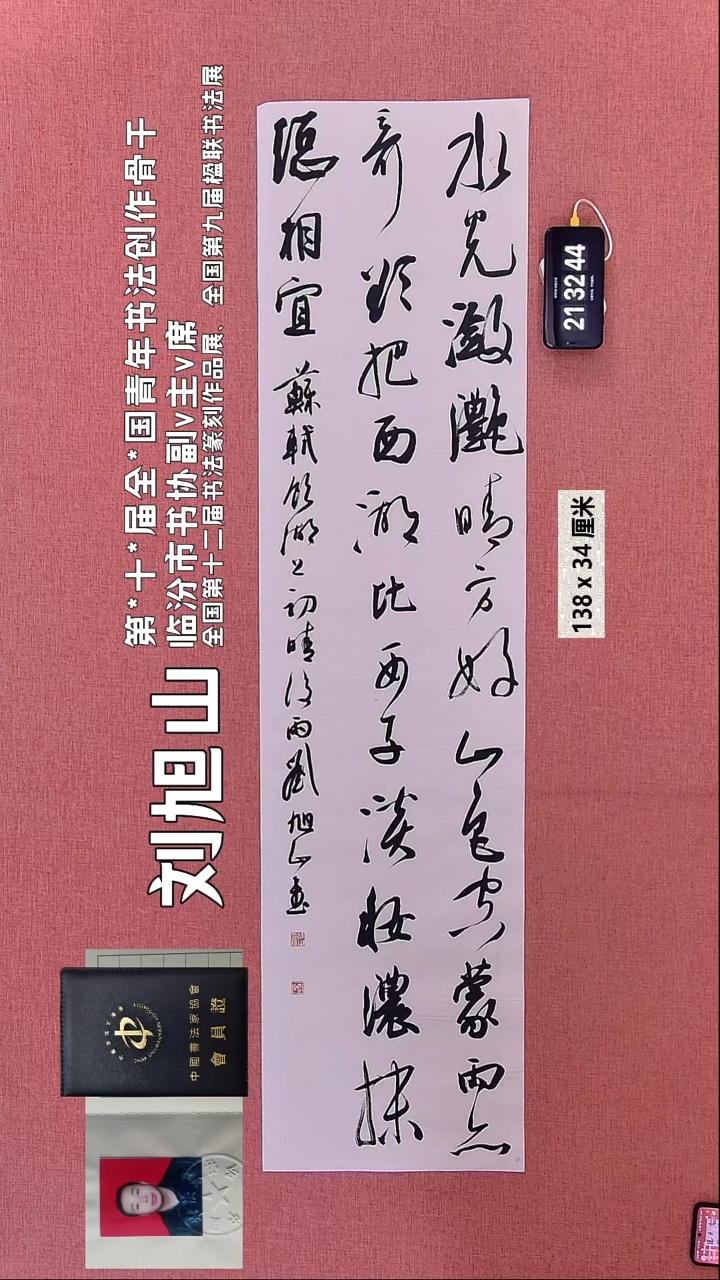 水光瀲灩晴方好山色空蒙雨亦
奇欲把西湖比西子淡妝濃抹
總相宜 蘇軾飲湖上初晴後雨劉旭山書
刘旭山
第*十*届全*国青年书法创作骨干
临汾市书协副v主v席
全国第十二届书法篆刻作品展、全国第九届楹联书法展
中國書法家協會
會員證
21 32 44
138 x 34 厘米